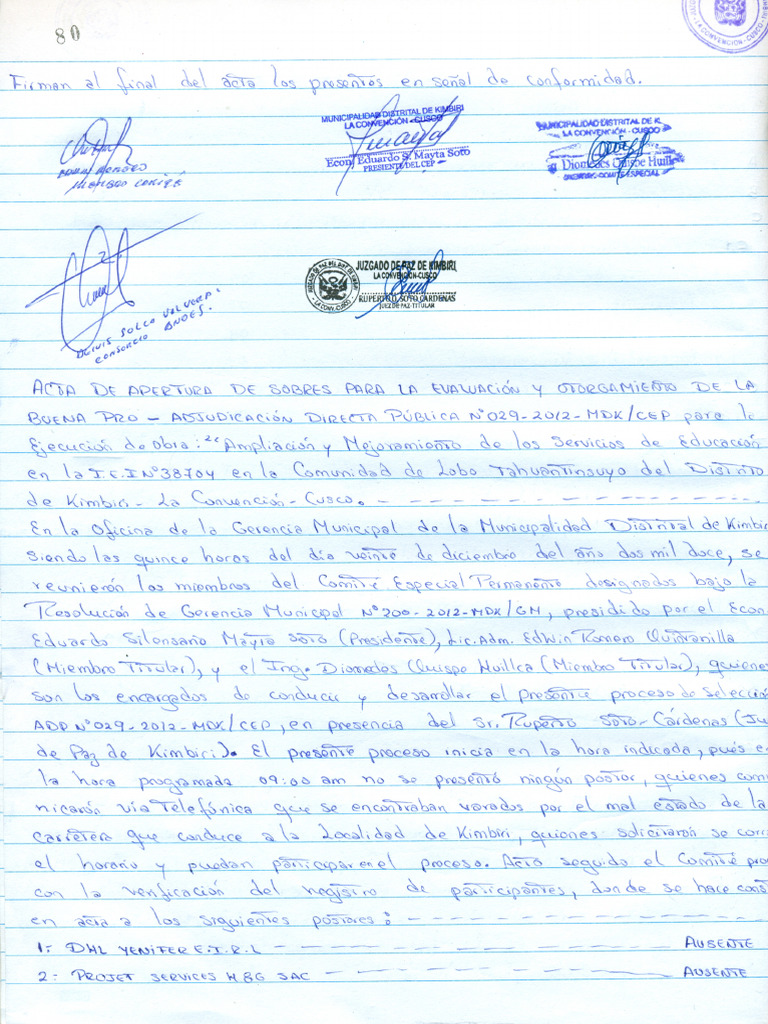 80
LA CONVENCIÓN - CUSCO
Firman al final del acta los presentes en señal de conformidad.
MUNICIPALIDAD DISTRITAL DE KIMBIRI
LA CONVENCIÓN - CUSCO
Econ. Eduardo S. Mayta Soto
PRESIDENTE DEL CEP
MUNICIPALIDAD DISTRITAL DE K
LA CONVENCIÓN - CUSCO
Diomedes Quispe Huill
COMITE ESPECIAL
JUZGADO DE PAZ DE KIMBIRI
LA CONVENCIÓN-CUSCO
RUPERTO SOTO CARDENAS
JUEZ DE PAZ-TITULAR
CONSORCIO ANDES.
ACTA DE APERTURA DE SOBRES PARA LA EVALUACIÓN Y OTORGAMIENTO DE LA
BUENA PRO - ADJUDICACIÓN DIRECTA PÚBLICA N°029-2012-MDK/CEP para la
Ejecución de obra: "Ampliación y Mejoramiento de los Servicios de Educación
en la I.E.I N°38704 en la Comunidad de Lobo Tahuantinsuyo del Distrito
de Kimbiri - La Convención - Cusco.
En la Oficina de la Gerencia Municipal de la Municipalidad Distrital de Kimbir
siendo las quince horas del día veinte de diciembre del año dos mil doce, se
reunierón los miembros del Comité Especial Permanente designados bajo la
Resolución de Gerencia Municipal N°200-2012-MDK/GM, presidido por el Econ
Eduardo Silensario Mayta Soto (Presidente), Lic. Adm. Edwin Romero Quintanilla
(Miembro Titular), y el Ing. Diomedes Quispe Huillca (Miembro Titular), quienes
son los encargados de conducir y desarrollar el presente proceso de selección
ADP N°029-2012-MDK/CEP, en presencia del Sr. Ruperto Soto Cárdenas (Ju
de Paz de Kimbiri.). El presente proceso inicia en la hora indicada, pués e
la hora programada 09:00 am no se presentó ningún postor, quienes comu
nicarón vía Telefónica que se encontraban varados por el mal estado de la
carretera que conduce a la Localidad de Kimbiri, quienes solicitarón se corr
el horario y puedan participar en el proceso. Acto seguido el Comité pro
con la verificación del registro de participantes, donde se hace const
en acta a los siguientes postores:
1.- DHL YENIFER E.I.R.L AUSENTE
2.- PROJET SERVICES H&G SAC AUSENTE